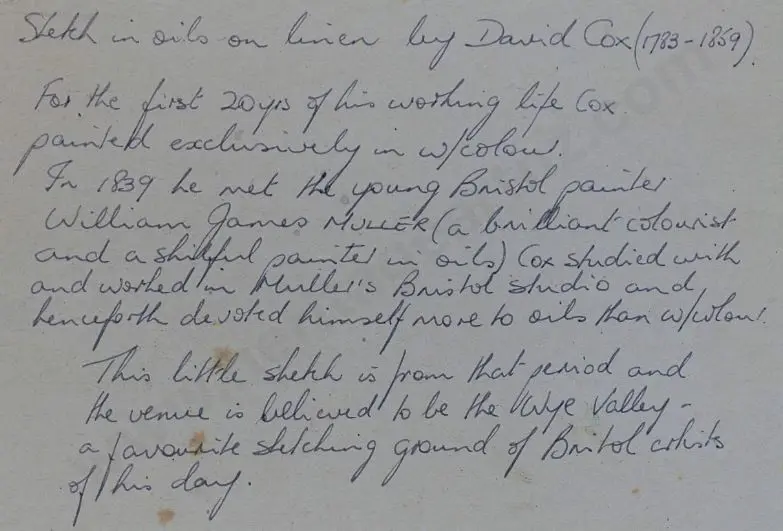 Sketch in oils on linen by David Cox (1783-1859)
For the first 20yrs of his working life Cox
painted exclusively in w/colour.
In 1839 he met the young Bristol painter
William James MULLER (a brilliant colourist
and a skilful painter in oils) Cox studied with
and worked in Muller's Bristol studio and
henceforth devoted himself more to oils than w/colour.
This little sketch is from that period and
the venue is believed to be the Wye Valley -
a favourite sketching ground of Bristol artists
of his day.